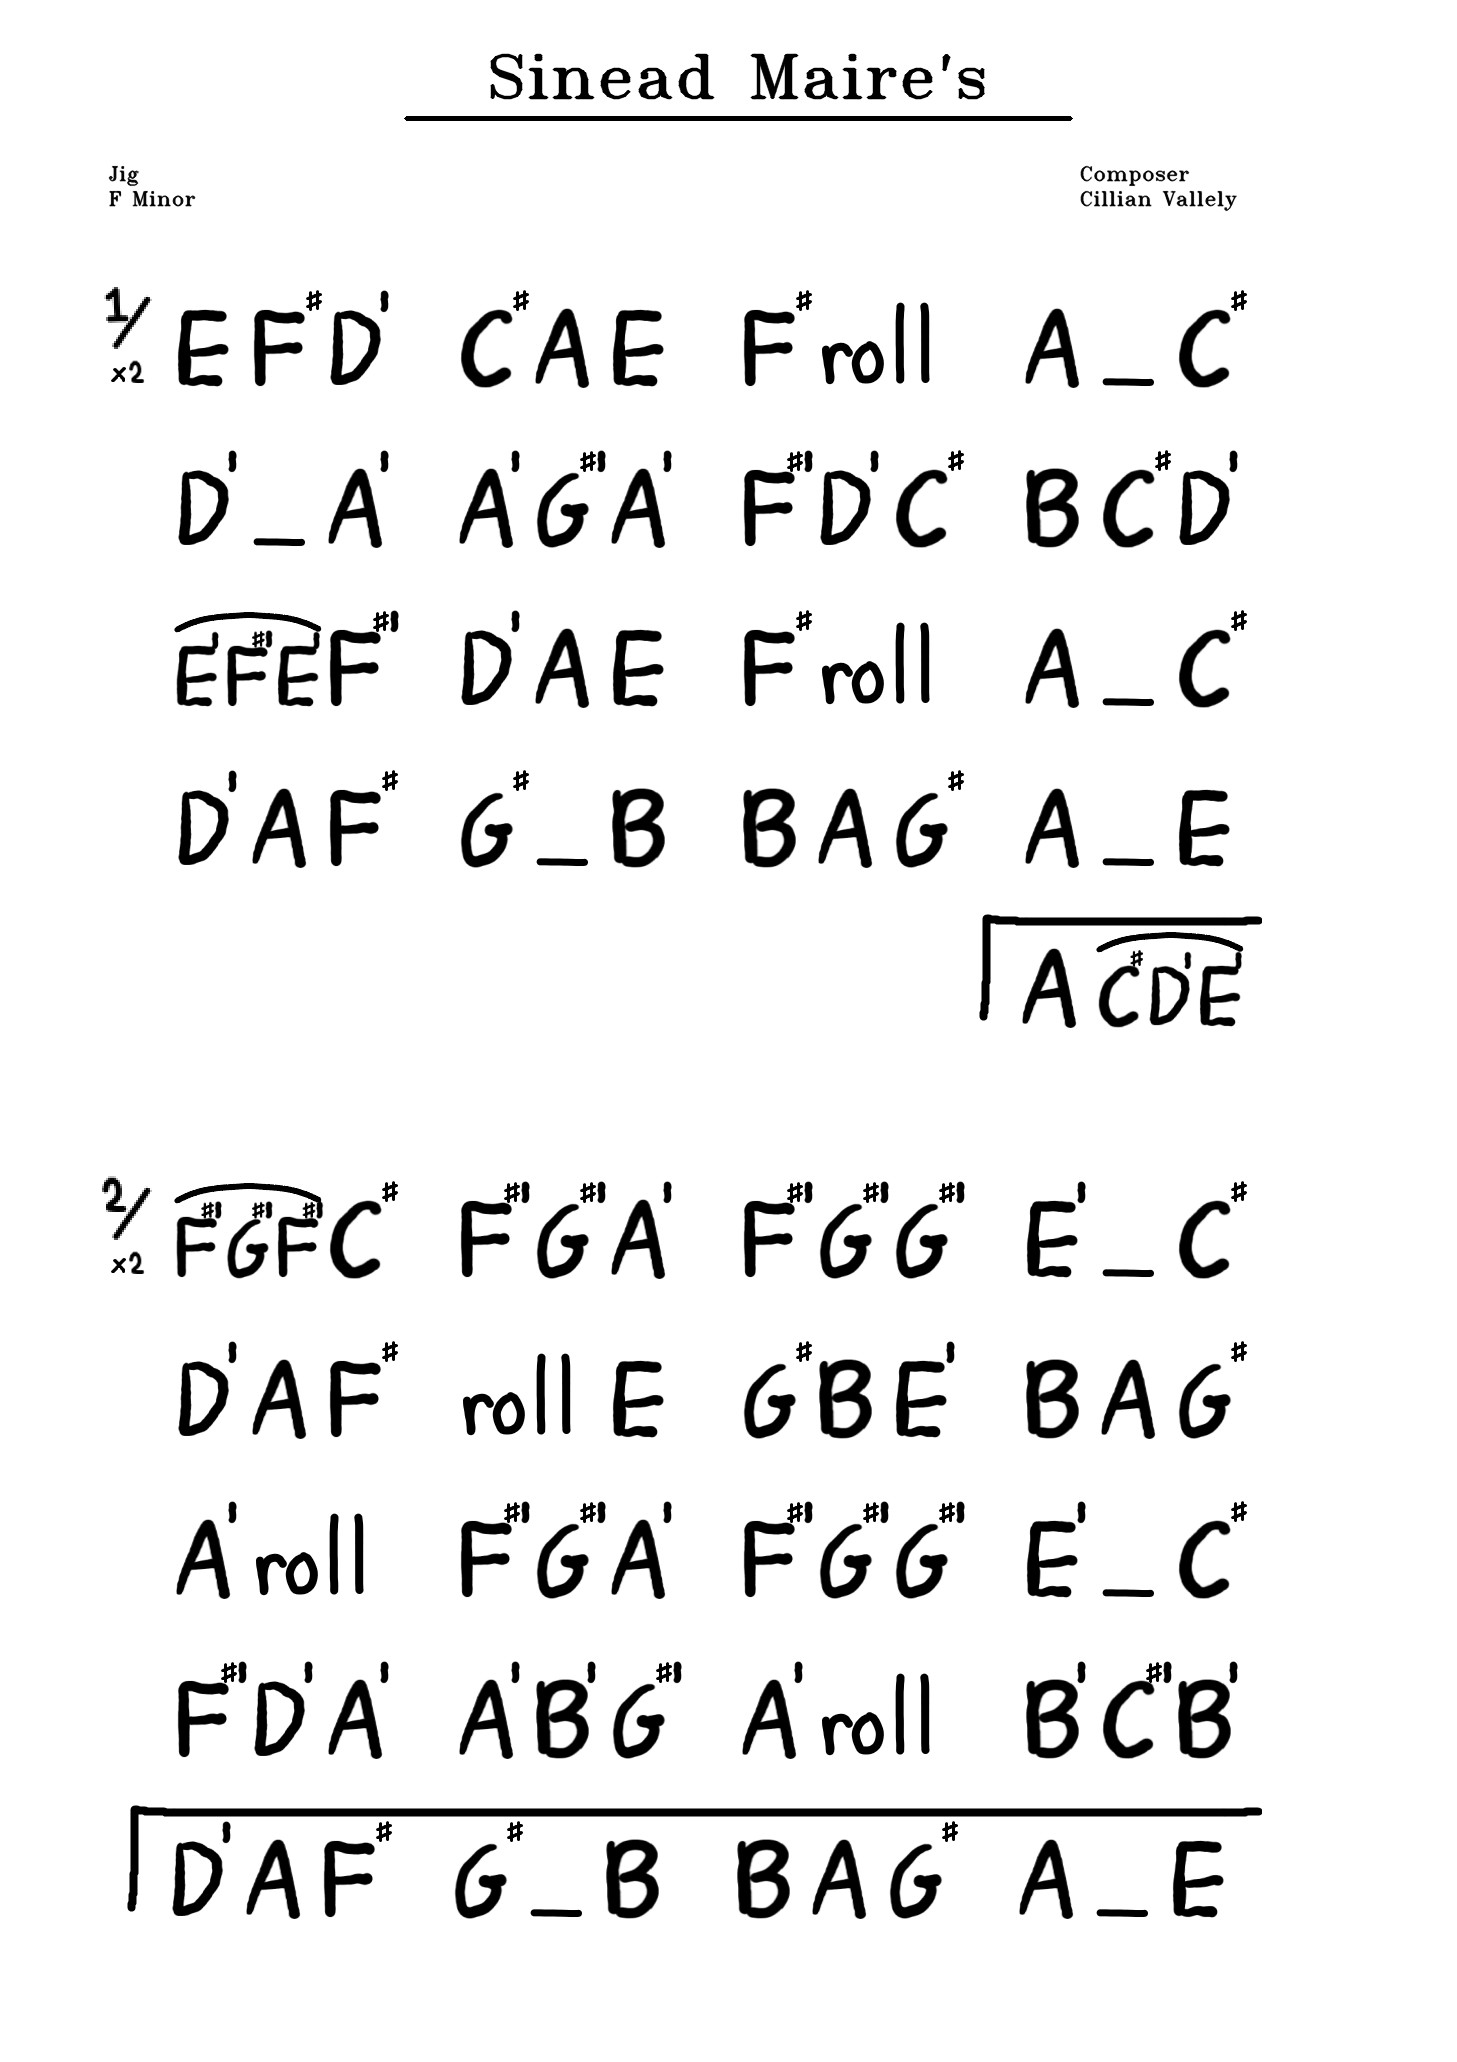 Sinead Maire's
Jig
F Minor
Composer
Cillian Vallely
1/ x2 E F♯ D' C♯ A E F♯ roll A _ C♯
D' _ A' A' G♯' A' F♯' D' C♯ B C♯ D'
E' F♯' E' F♯' D' A E F♯ roll A _ C♯
D' A F♯ G♯ _ B B A G♯ A _ E
A C♯ D' E'
2/ x2 F♯' G♯' F♯' C♯ F♯' G♯' A' F♯' G♯' G♯' E' _ C♯
D' A F♯ roll E G♯ B E' B A G♯
A' roll F♯' G♯' A' F♯' G♯' G♯' E' _ C♯
F♯' D' A' A' B' G♯' A' roll B' C♯' B'
D' A F♯ G♯ _ B B A G♯ A _ E